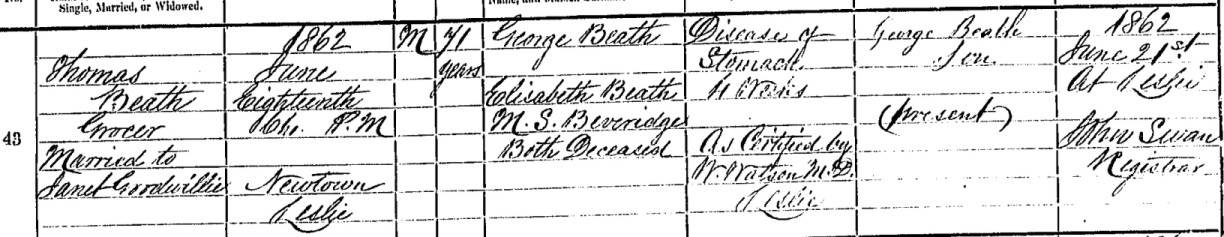 Single, Married, or Widowed.
43
Thomas
Beath
Grocer
Married to
Janet Goodwillie
1862
June
Eighteenth
P.M
Newtown
Leslie
M
71
years
George Beath
Elisabeth Beath
M. S. Beveridge
Both Deceased
Diseases of
Stomach
As Certified by
W. Watson M.D.
Leslie
George Beath
Son
(present)
1862
June 21st
At Leslie
John Swan
Registrar